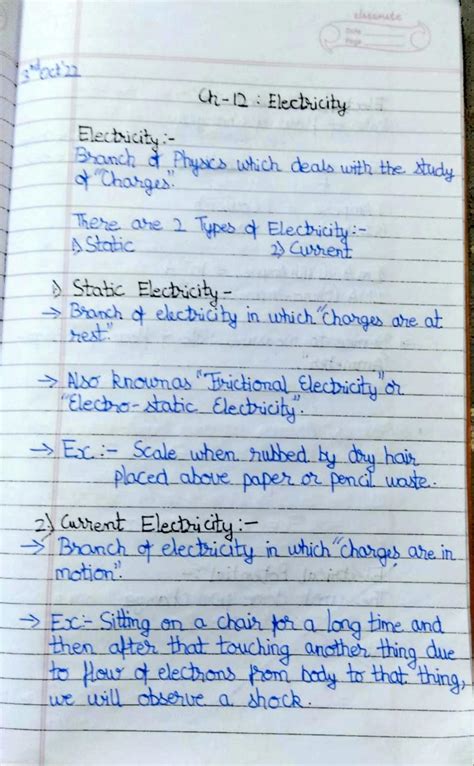 classmate
Date
Page
3rd Oct'22
Ch-12 : Electricity
Electricity:-
Branch of Physics which deals with the study
of "Charges".
There are 2 Types of Electricity:-
1) Static 2) Current
1) Static Electricity:-
→ Branch of electricity in which "Charges are at
rest".
→ Also knownas "Frictional Electricity" or
"Electro-static Electricity".
→ Ex:- Scale when rubbed by dry hair
placed above paper or pencil waste.
2) Current Electricity:-
→ Branch of electricity in which "charges are in
motion".
→ Ex:- Sitting on a chair for a long time and
then after that touching another thing due
to flow of electrons from body to that thing,
we will observe a shock.